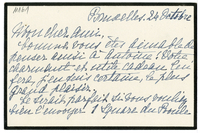 Bruxelles, 24 Octobre
Mon cher ami,
Comme vous êtes aimable de
penser ainsi à Antoine! Votre
charmant et utile cadeau lui
fera, j'en suis certaine, le plus
grand plaisir.
Ce serait parfait si vous vouliez
l'envoyer 1 Square du